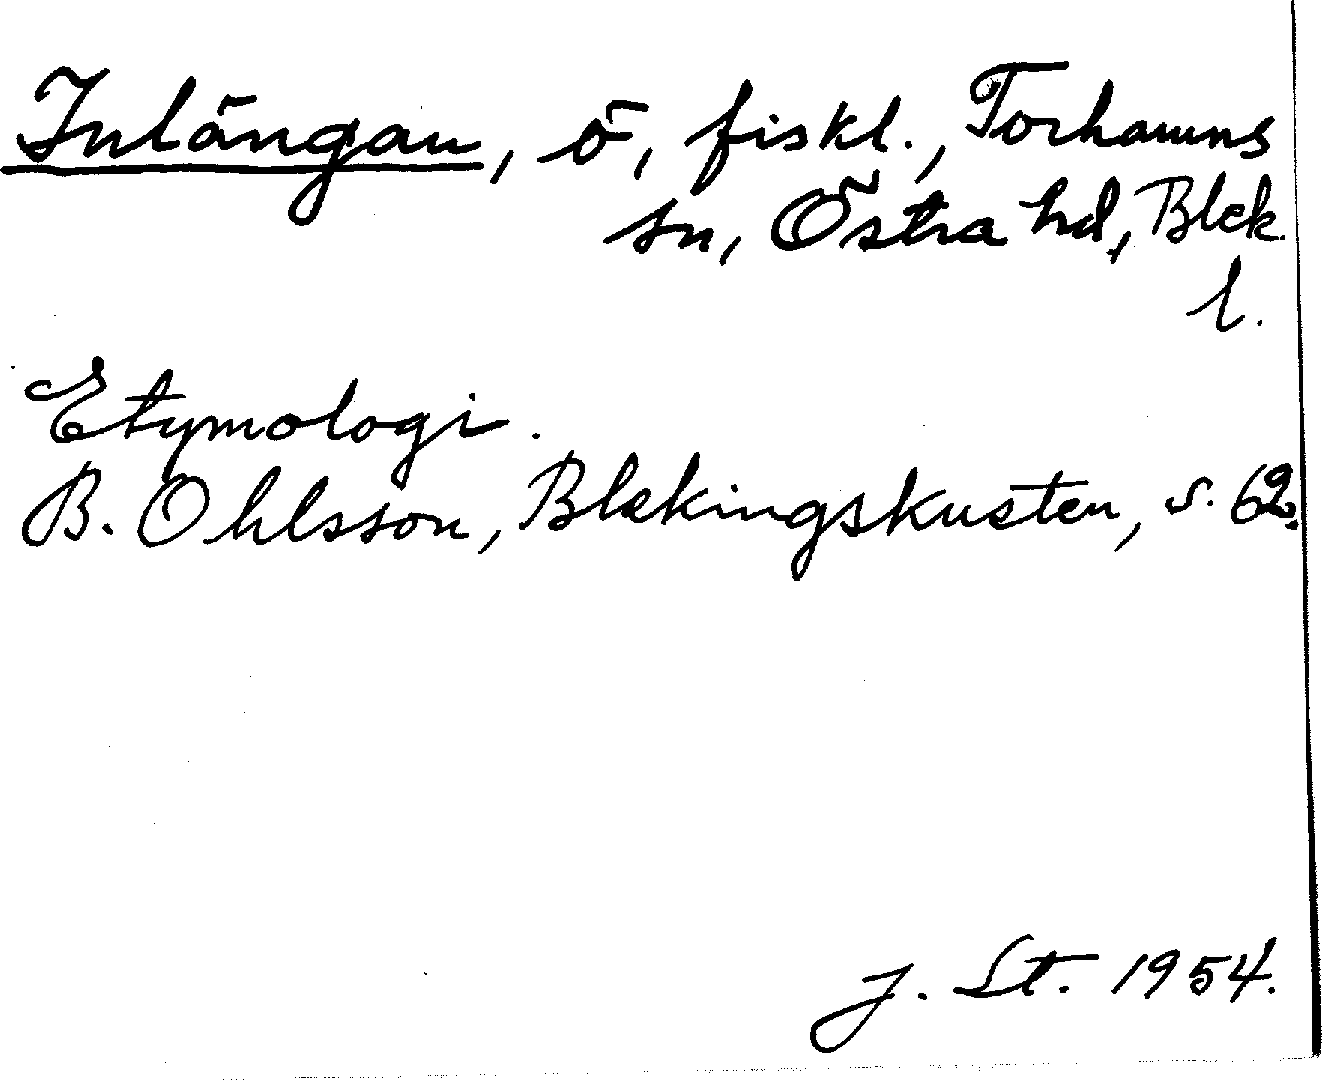 Inlängan, ö, fiskl., Torhamns
sn, Östra hd, Blek.
l.
Etymologi.
B. Ohlsson, Blekingskusten, s. 62.
J. St. 1954.